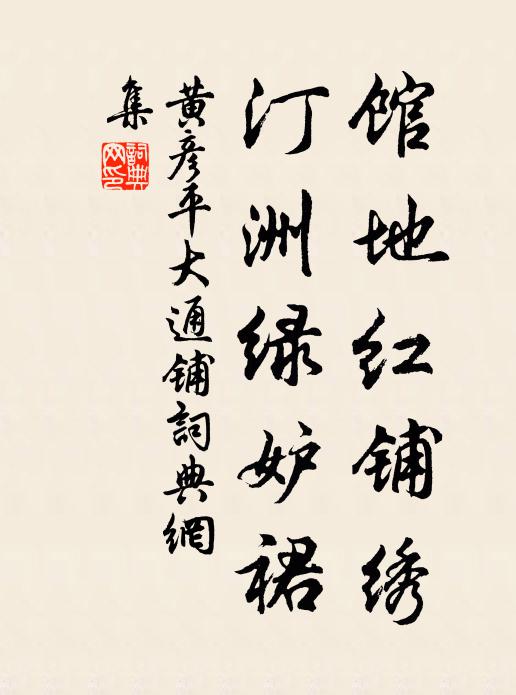 馆地红铺绣
汀洲绿妒裙
黄彦平大通铺詞典網
集
詞典
网印